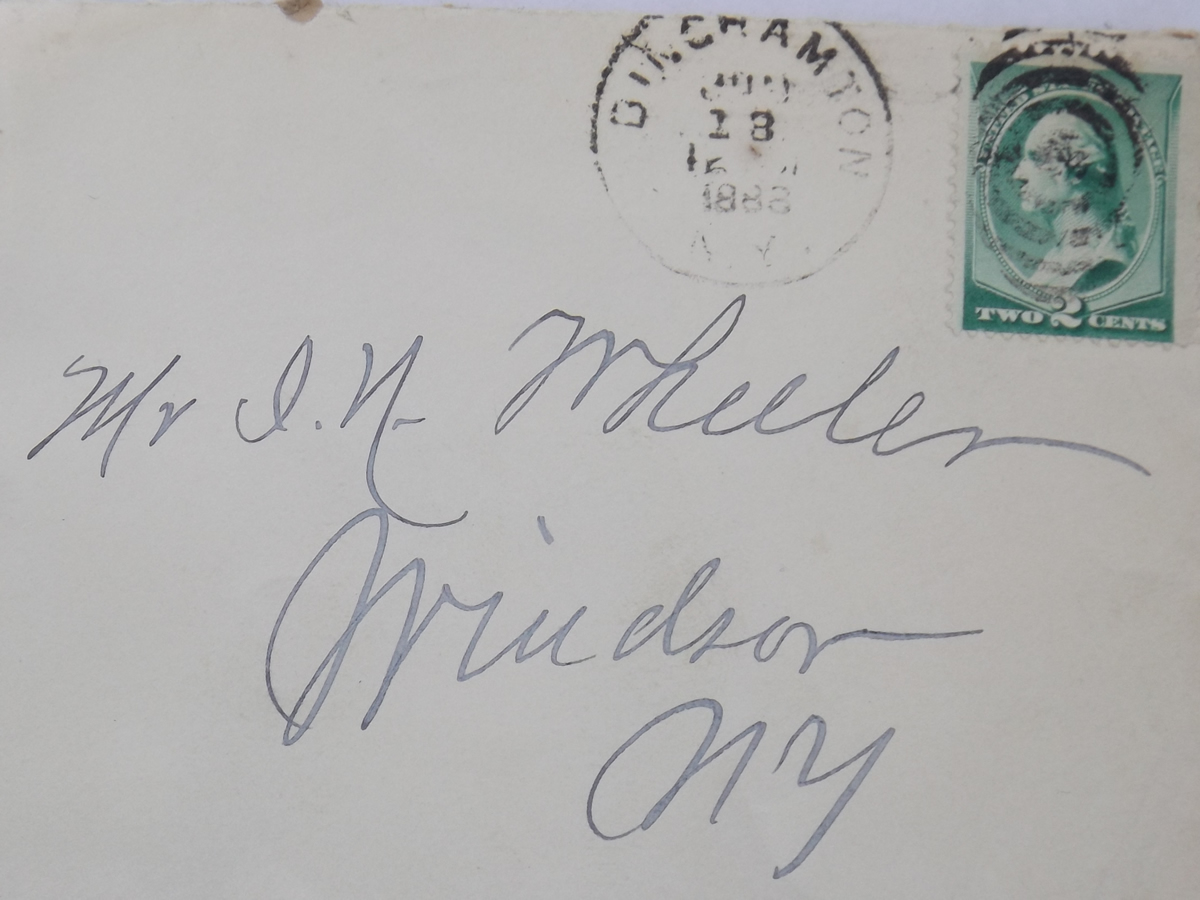 BINGHAMTON
18
1888
N.Y.
TWO 2 CENTS
Mr I. N. Wheeler
Windsor
NY